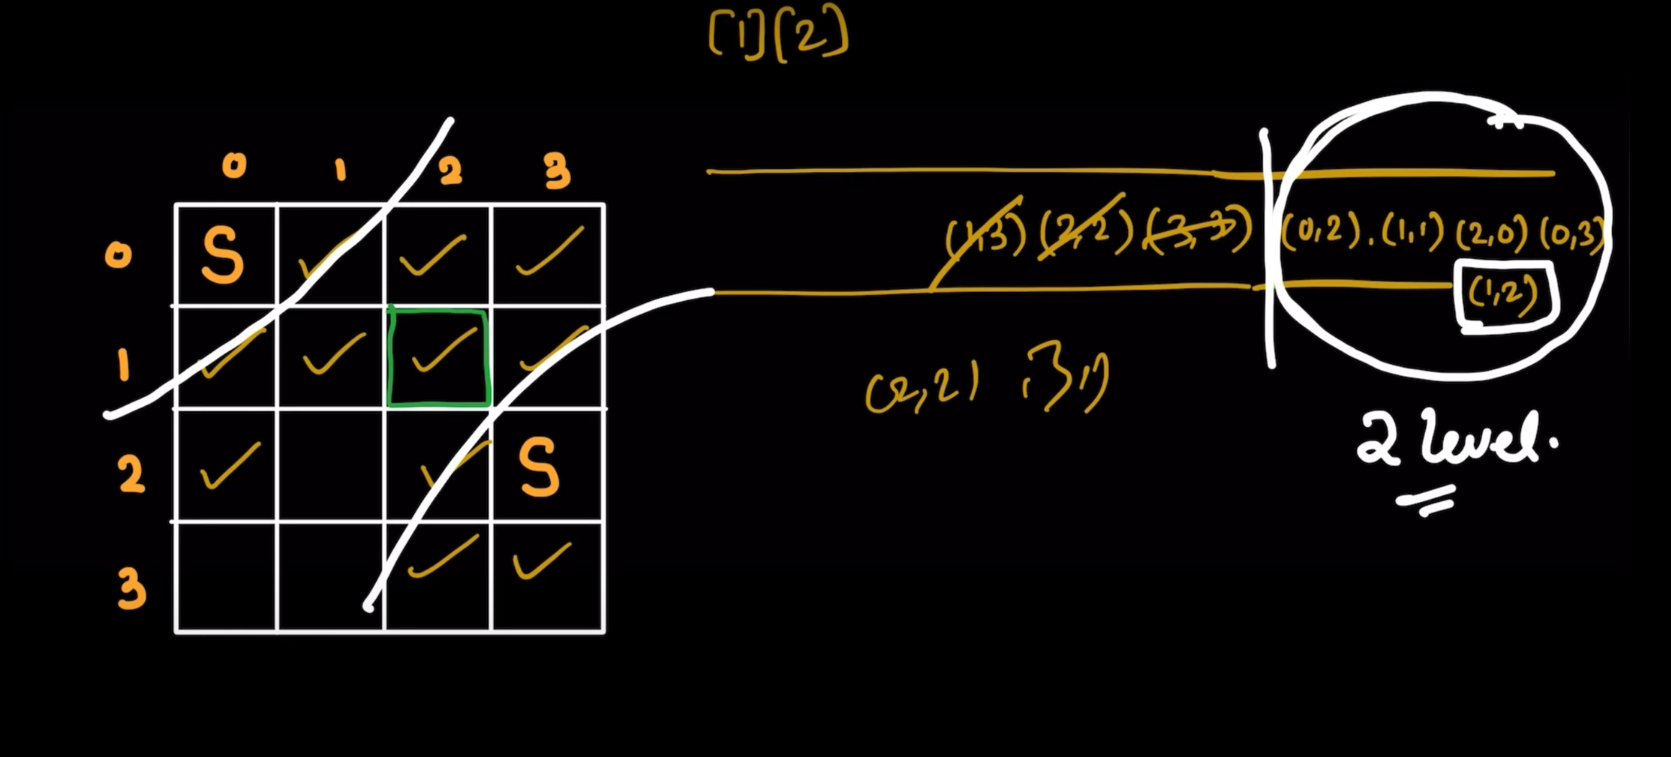 [1][2]
0 1 2 3
0 S
1
2 S
3
(1,3) (2,2) (3,3) (0,2). (1,1) (2,0) (0,3)
(1,2)
(2,2)
2 level.